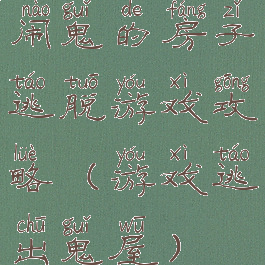 nào guǐ de fáng zǐ
闹鬼的房子
táo tuō yóu xì gōng
逃脱游戏攻
lüè yóu xì táo
略(游戏逃
chū guǐ wū
出鬼屋)